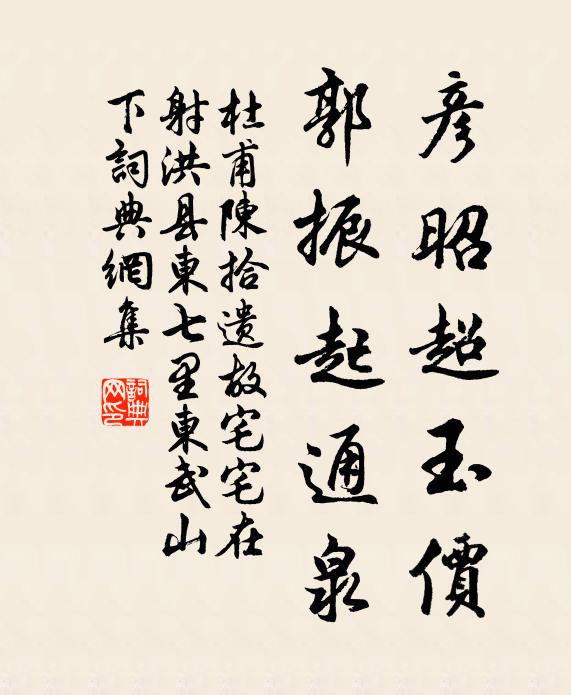 彦昭超玉價
郭振起通泉
杜甫陳拾遺故宅宅在
射洪县東七里東武山
下詞典網集
詞典网印